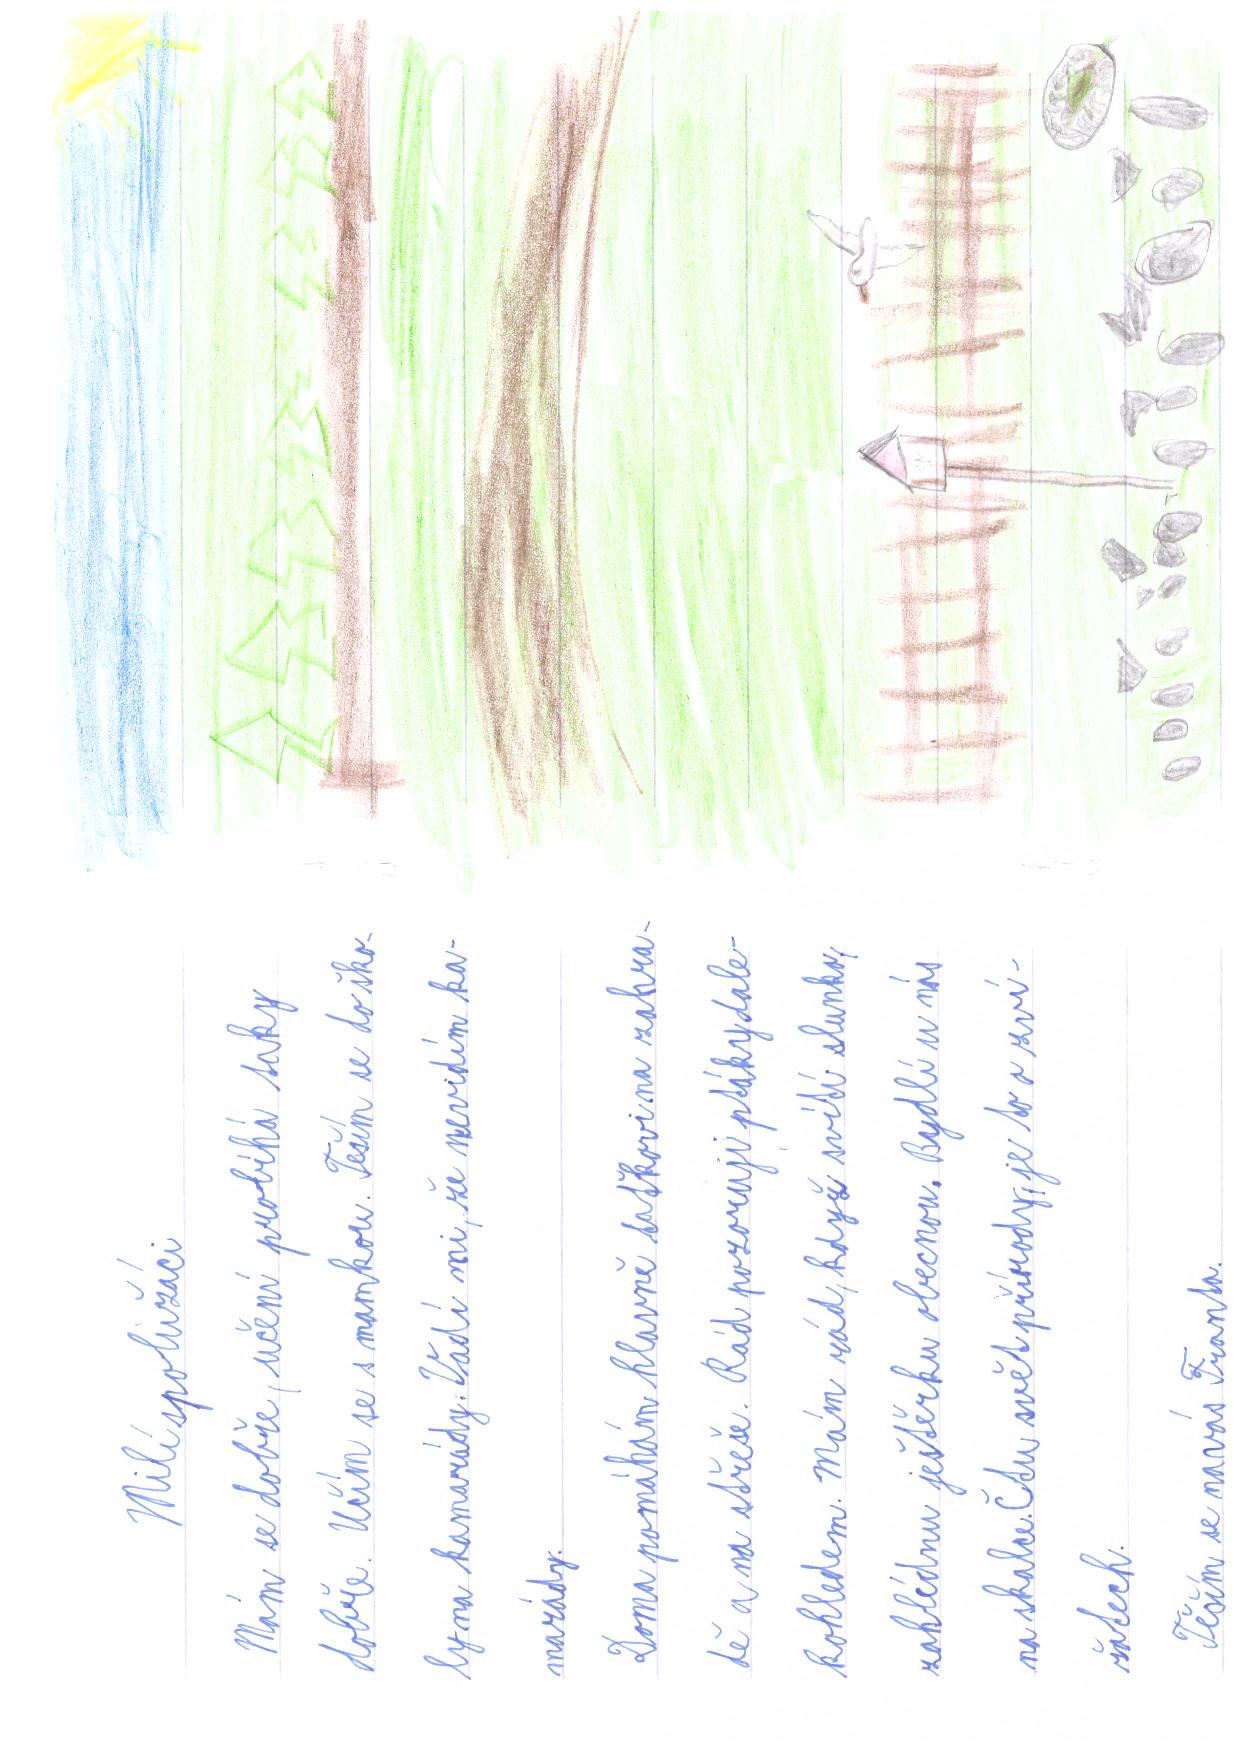 Milí spolužáci.
Mám se dobře, učení probíhá taky
dobře. Učím se s mamkou. Těším se do ško-
ly na kamarády. Vadí mi, že nevidím ka-
marády.
Doma pomáhám hlavně taťkovi na zahra-
dě a na střeše. Rád pozoruji ptáky dale-
kohledem. Mám rád, když svítí slunko,
zahlédnu ještěrku obecnou. Bydlí u nás
na skalce. Čtu svět přírody, je to o zví-
řatech.
Těším se na vás Franta.